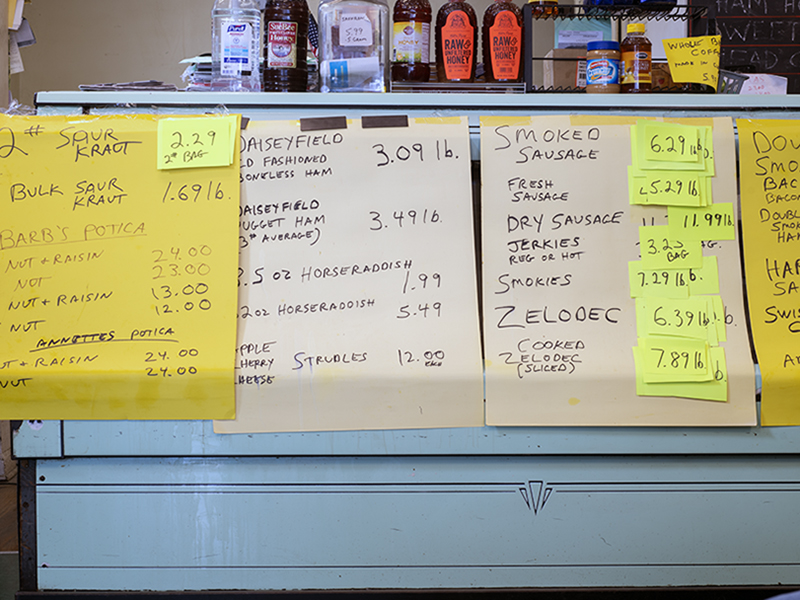 Purell
SueBee
Honey
5.99
HONEY
RAW &
UNFILTERED
HONEY
RAW &
UNFILTERED
HONEY
WHOLE B
COFF
HAM
2# SOUR
KRAUT
2.29
2# BAG
BULK SAUR
KRAUT 1.69 lb.
BARB'S POTICA
NUT + RAISIN 24.00
NUT 23.00
NUT + RAISIN 13.00
NUT 12.00
ANNETTES POTICA
UT + RAISIN 24.00
NUT 24.00
DAISEYFIELD
LD FASHIONED
BONELESS HAM
3.09 lb.
DAISEYFIELD
NUGGET HAM
(3# AVERAGE)
3.49 lb.
.5 OZ HORSERADDISH
1.99
2 OZ HORSERADDISH 5.49
PPLE
CHERRY STRUDLES 12.00
EACH
CHEESE
SMOKED
SAUSAGE
6.29 lb.
FRESH
SAUSAGE
5.29 lb.
DRY SAUSAGE 11.99 lb.
JERKIES
REG OR HOT
3.25
BAG
SMOKIES 7.29 lb.
ZELODEC 6.39 lb.
COOKED
ZELODEC
(SLICED)
7.89 lb.
DOU
SMO
BAC
BACO
DOUBL
SMOK
HA
HAR
SA
SWIS